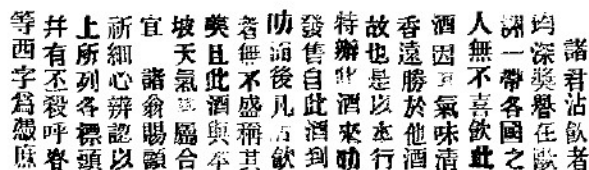 諸君沾飲者
均深獎譽在歐
洲一帶各國之
人無不喜飲此
酒因其氣味清
香遠勝於他酒
故也是以本行
特辦此酒來叻
發售自此酒到
叻而後凡沾飲
者無不盛稱其
美且此酒與本
坡天氣屬合
宜 諸翁賜顧
祈細心辨認以
上所列各標頭
幷有丕殺呼脊
等西字爲憑庶